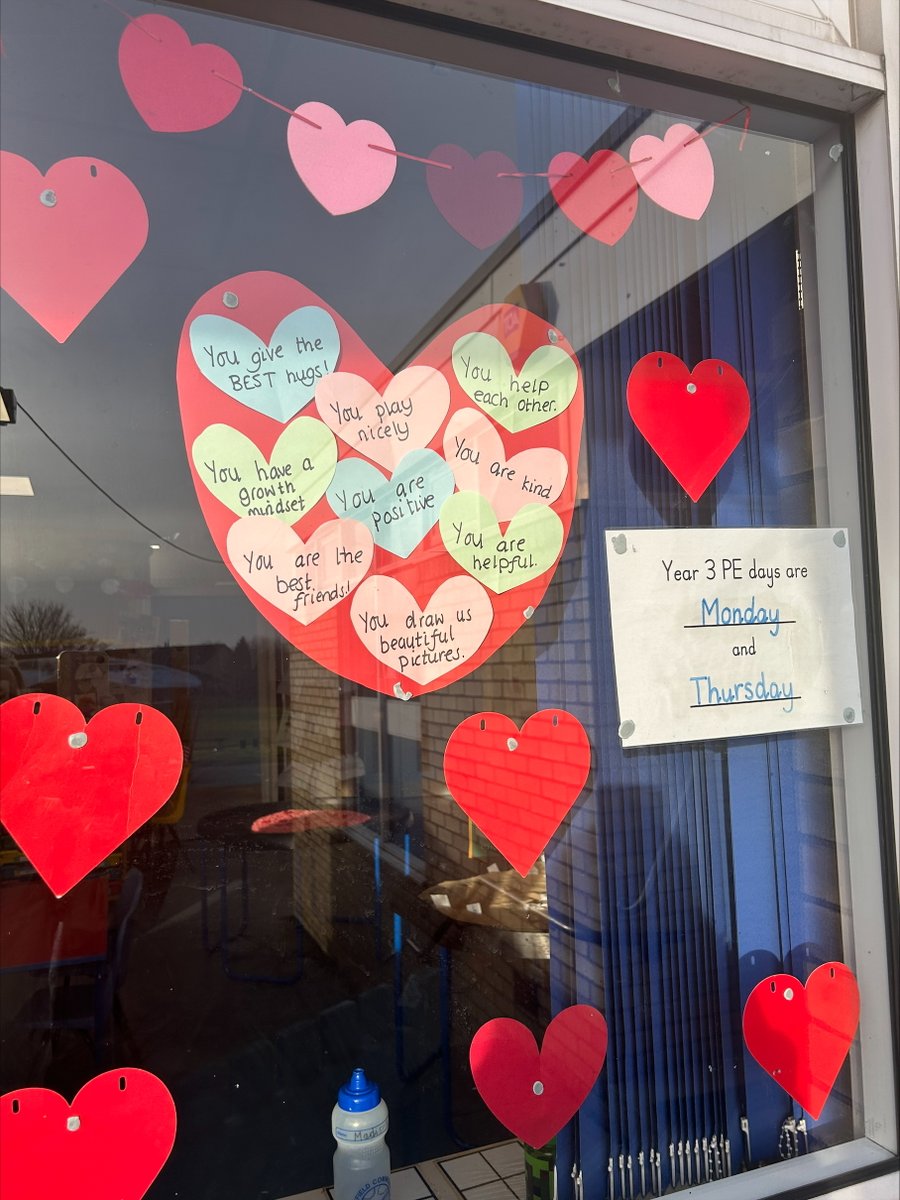 You give the
BEST hugs!
You play
nicely
You help
each other.
You have a
growth
mindset
You are
positive
You are kind
You are the
best
friends!
You are
helpful.
You draw us
beautiful
pictures.
Year 3 PE days are
Monday
and
Thursday